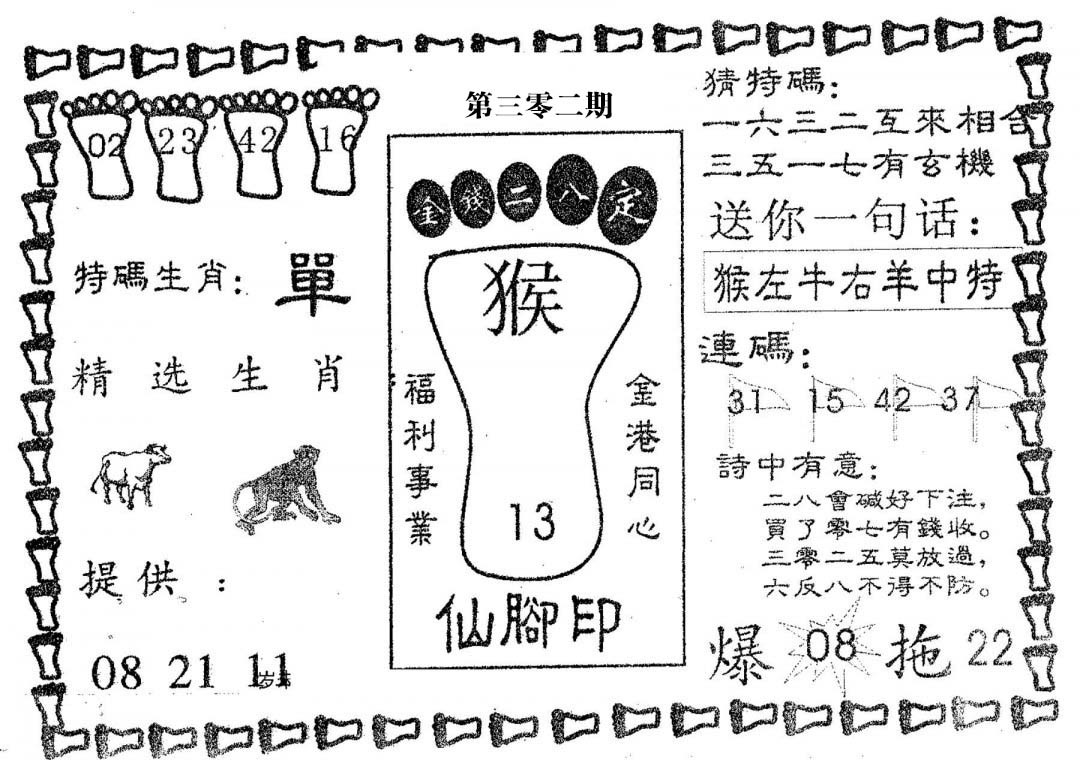 第三零二期
02 23 42 16
特碼生肖：單
精选生肖
提供：
08 21 11
金錢二八定
猴
福利事業
金港同心
13
仙腳印
猜特碼：
一六三二互來相合
三五一七有玄機
送你一句话：
猴左牛右羊中特
連碼：
31 15 42 37
詩中有意：
二八會碱好下注，
買了零七有錢收。
三零二五莫放過，
六反八不得不防。
爆 08 拖 22